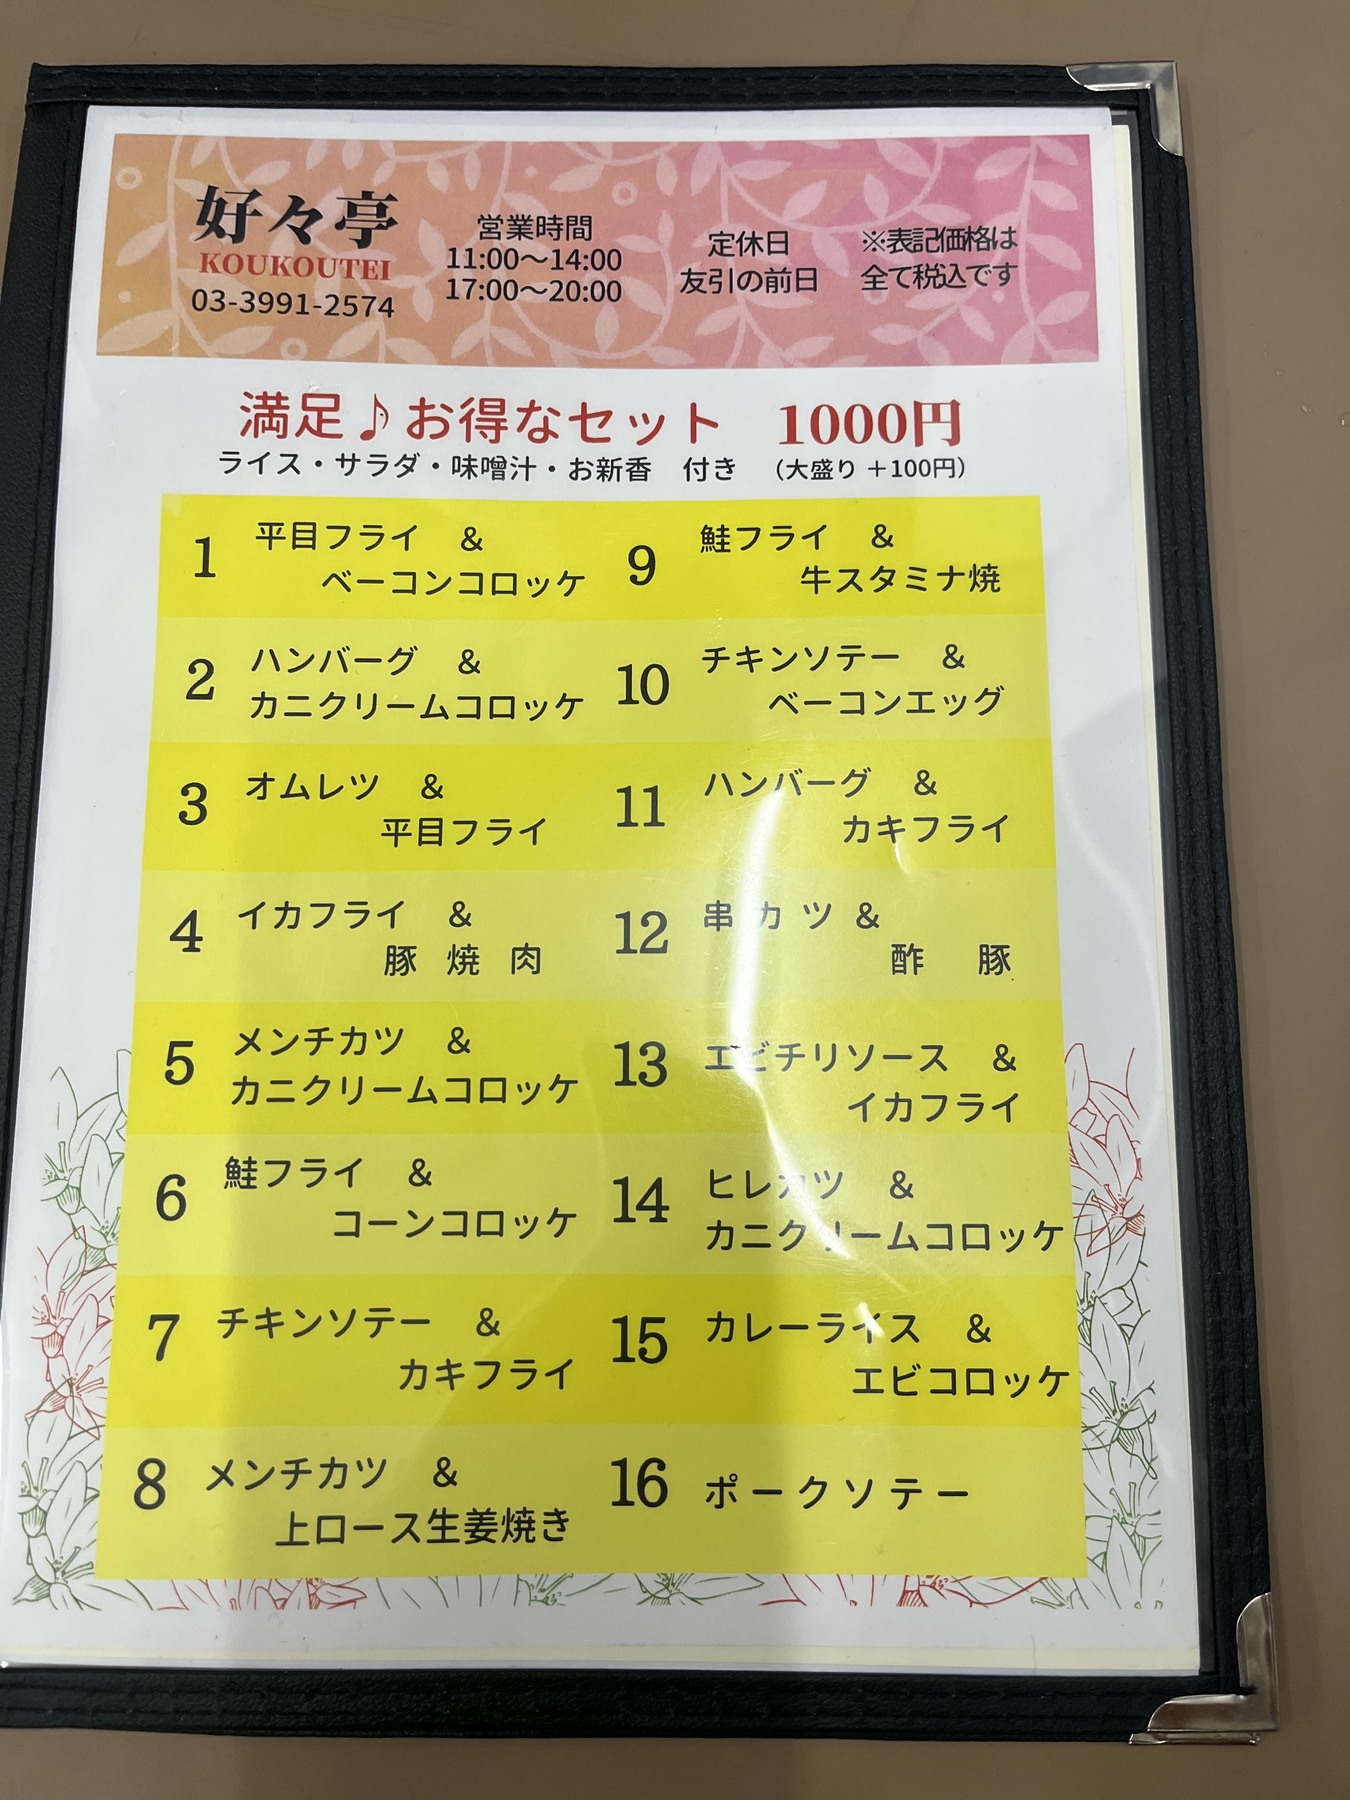 好々亭
KOUKOUTEI
03-3991-2574
営業時間
11:00〜14:00
17:00〜20:00
定休日
友引の前日
※表記価格は
全て税込です
満足♪お得なセット　1000円
ライス・サラダ・味噌汁・お新香　付き　（大盛り ＋100円）
1 平目フライ　&
ベーコンコロッケ
2 ハンバーグ　&
カニクリームコロッケ
3 オムレツ　&
平目フライ
4 イカフライ　&
豚 焼 肉
5 メンチカツ　&
カニクリームコロッケ
6 鮭フライ　&
コーンコロッケ
7 チキンソテー　&
カキフライ
8 メンチカツ　&
上ロース生姜焼き
9 鮭フライ　&
牛スタミナ焼
10 チキンソテー　&
ベーコンエッグ
11 ハンバーグ　&
カキフライ
12 串 カ ツ &
酢　豚
13 エビチリソース　&
イカフライ
14 ヒレカツ　&
カニクリームコロッケ
15 カレーライス　&
エビコロッケ
16 ポークソテー